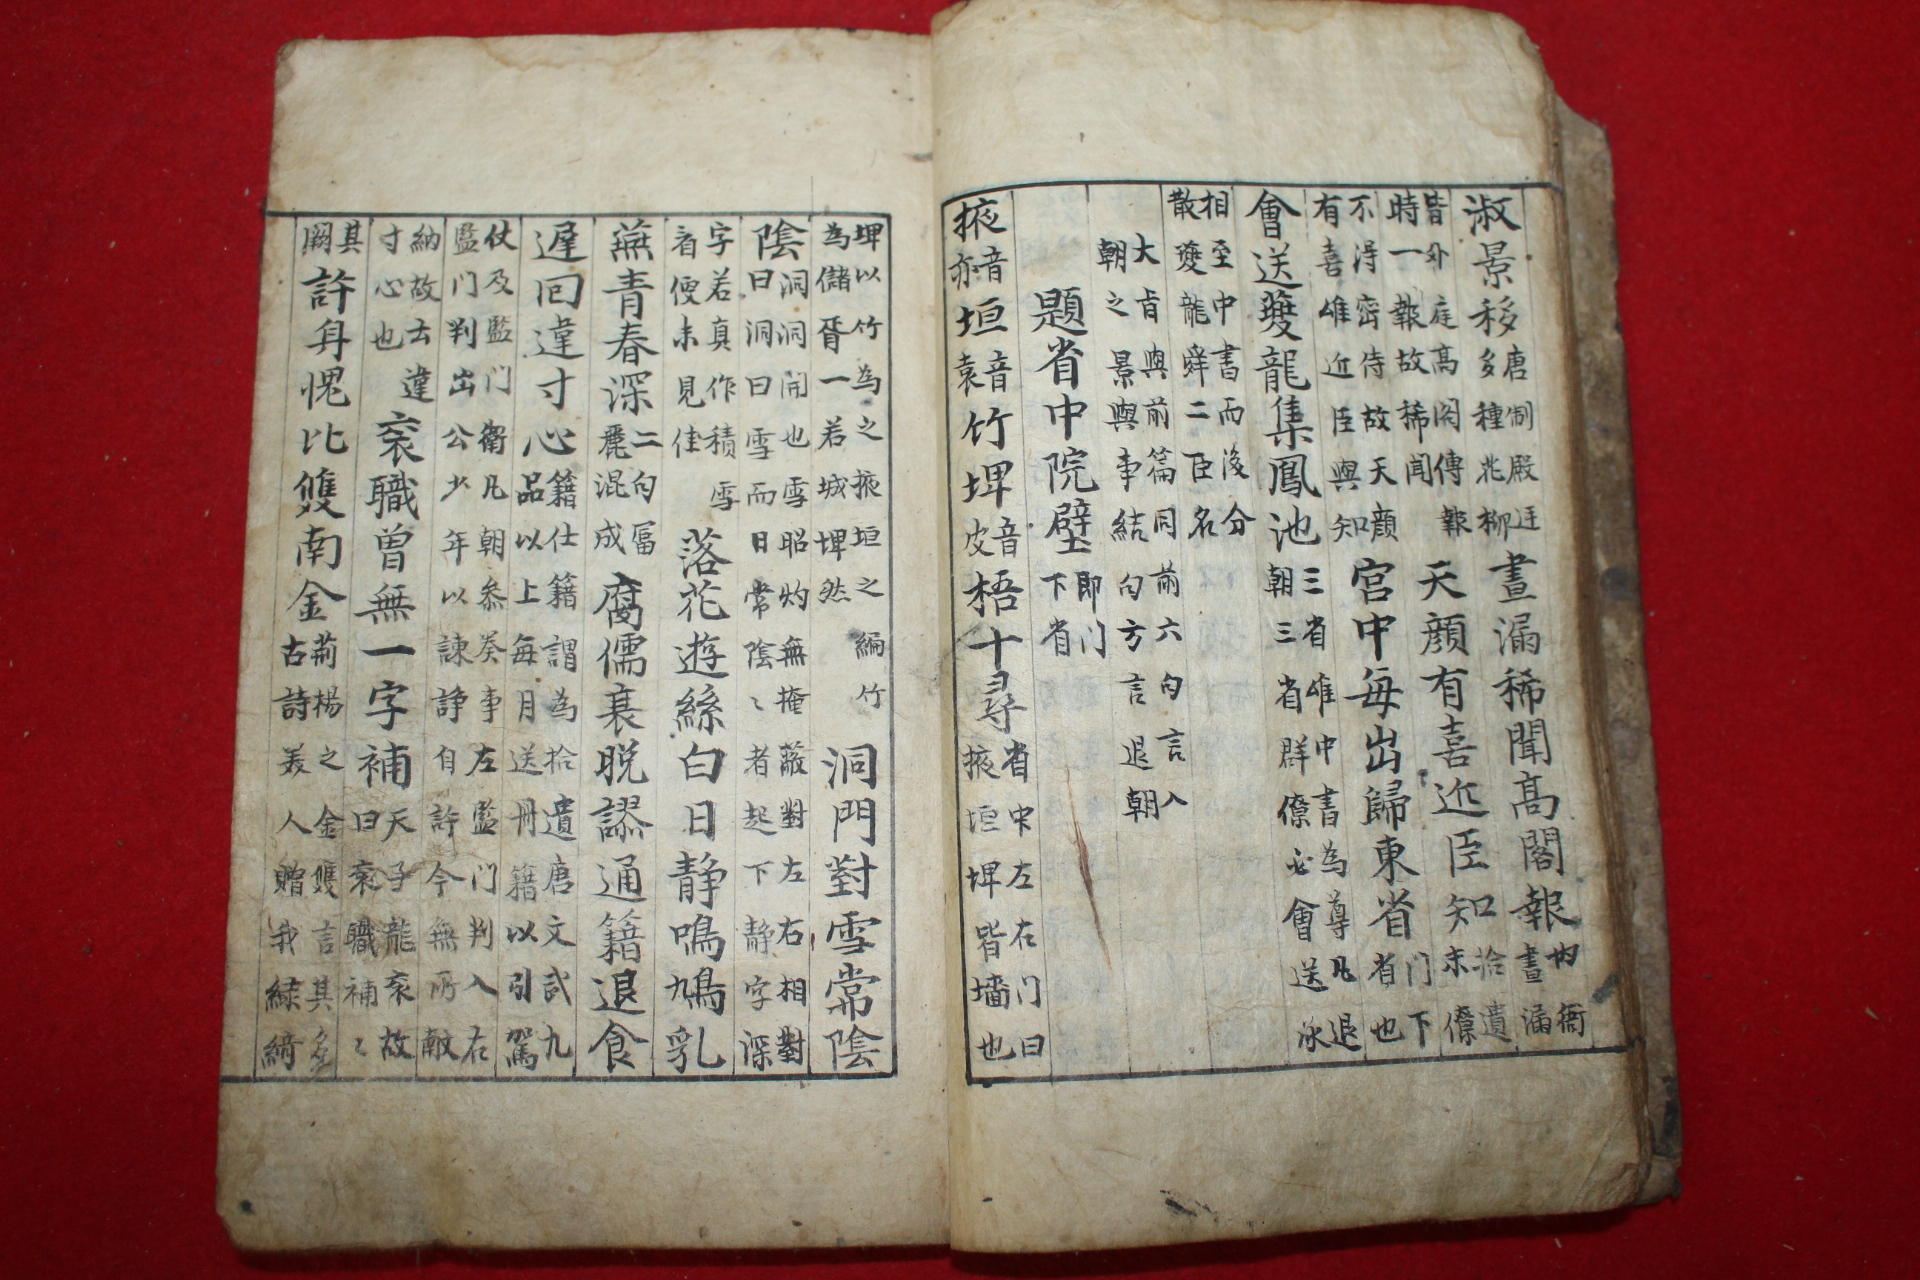 淑景移唐制殿廷
多種花柳晝漏稀聞高閣報内衙
晝漏
皆外庭高閣傳報
時一報故稀聞天顔有喜近臣知拾遺
末僚
不淂密侍故天顔
有喜唯近臣與知宮中每出歸東省门下
省也
會送夔龍集鳳池三省唯中書為尊凡退
朝三省群僚必會送泳
相至中書而後分
散夔龍舜二臣名
大㫖與前篇同前六句言入
朝之景與事結句方言退朝
題省中院壁即门
下省
掖音亦垣音袁竹埤音皮梧十尋省中左右门曰
掖垣埤皆墻也
埤以竹為之掖垣之編竹
為儲胥一若城埤然洞門對雪常陰
陰洞洞開也雪昭灼無掩蔽對左右相對
曰洞洞曰雪而日常陰〻者起下静字深
字若真作積雪
看便未見佳落花遊絲白日静鳴鳩乳
燕青春深二句富
麗混成腐儒衰脫謬通籍退食
遲回違寸心籍仕籍謂為拾遺唐文武九
品以上每月送冊籍以引駕
仗及監门衛凡朝参奏事左監门判入右
監门判出公少年以諫諍自許今無所献
納故去違
寸心也袞職曾無一字補天子龍袞故
曰袞職補〻
其
闕許身愧比雙南金荊楊之金雙言其多
古詩美人贈我緑綺